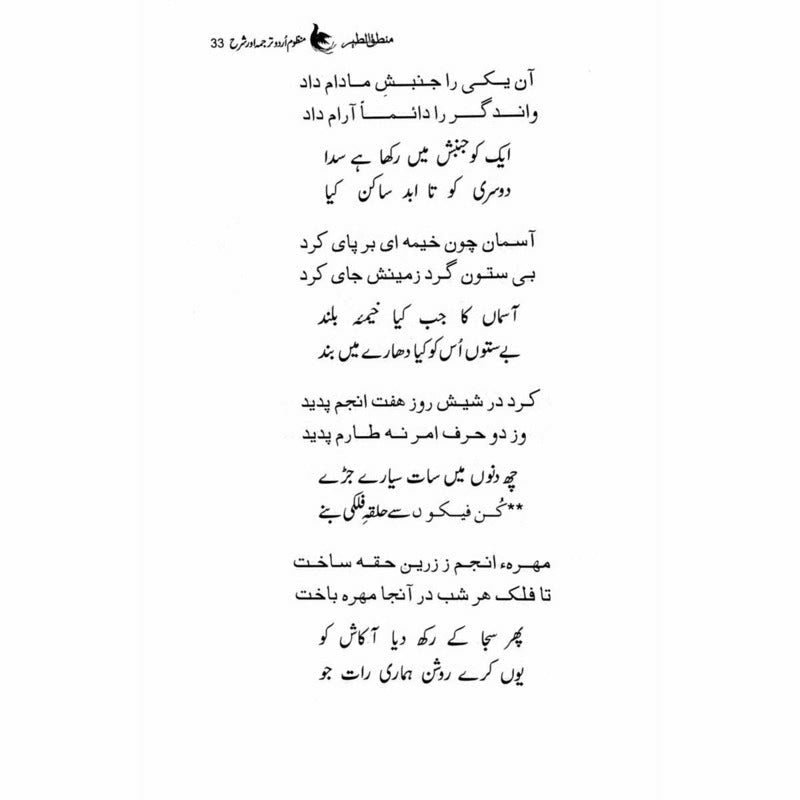 منطق الطیر منظوم اُردو ترجمہ اور شرح 33
آن یکی را جنبشِ مادام داد
واندگر را دائماً آرام داد
ایک کو جنبش میں رکھا ہے سدا
دوسری کو تا ابد ساکن کیا
آسمان چون خیمه ای بر پای کرد
بی ستون گرد زمینش جای کرد
آسماں کا جب کیا خیمۂ بلند
بے ستوں اُس کو کیا دھارے میں بند
کرد در شیش روز هفت انجم پدید
وز دو حرف امر نه طارم پدید
چھ دنوں میں سات سیارے جڑے
**کُن فیکوں سے حلقہِ فلکی بنے
مهرهء انجم ز زرین حقه ساخت
تا فلک هر شب در آنجا مهره باخت
پھر سجا کے رکھ دیا آکاش کو
یوں کرے روشن ہماری رات جو